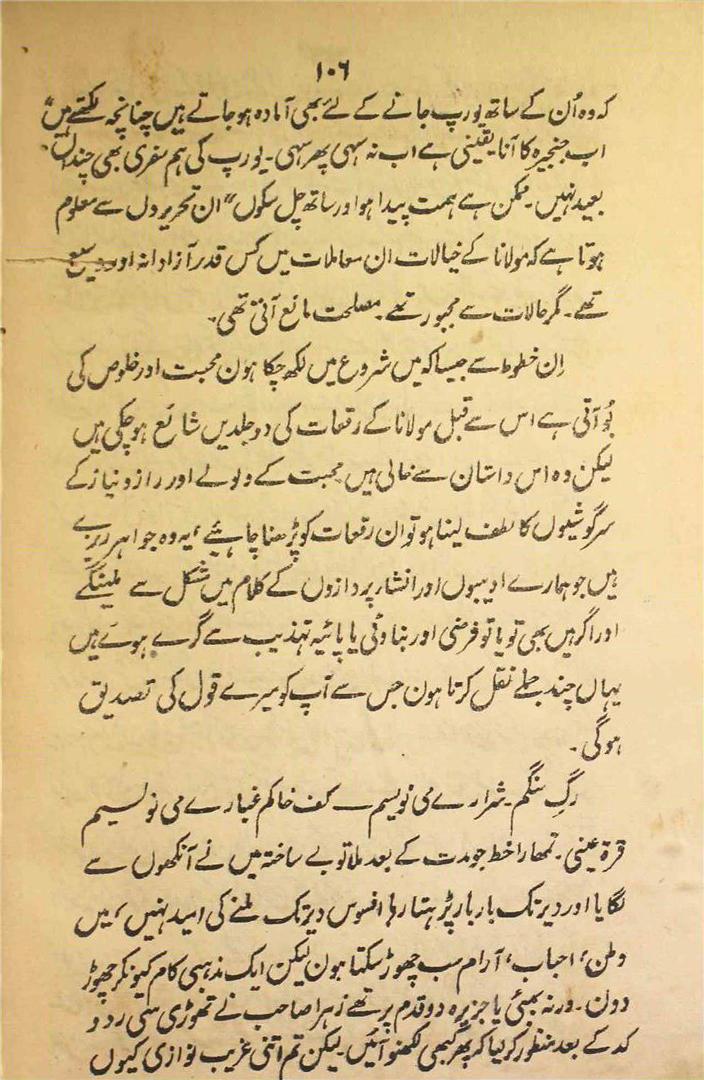 ۱۰۶
کہ وہ اُن کے ساتھ یورپ جانے کے لئے بھی آمادہ ہوجاتے ہیں چنانچہ لکھتے ہیں "
اب جنجیرہ کا آنا یقینی ہے اب نہ سہی پھر سہی۔ یورپ کی ہم سفری بھی چنداں
بعید نہیں۔ ممکن ہے ہمت پیدا ہو اور ساتھ چل سکوں" ان تحریروں سے معلوم
ہوتا ہے کہ مولانا کے خیالات ان معاملات میں کس قدر آزادانہ اور وسیع
تھے۔ مگر حالات سے مجبور تھے۔ مصلحت مانع آتی تھی۔
اِن خطوط سے جیسا کہ میں شروع میں لکھ چکا ہون محبت اور خلوص کی
بُو آتی ہے اس سے قبل مولانا کے رقعات کی دو جلدیں شائع ہوچکی ہیں
لیکن وہ اس داستان سے خالی ہیں محبت کے ولولے اور راز و نیاز کے
سرگوشیوں کا لطف لینا ہو تو ان رقعات کو پڑھنا چاہئیے، یہ وہ جواہر ریزے
ہیں جو ہمارے ادیبوں اور انشاپردازوں کے کلام میں مشکل سے ملینگے
اور اگر ہیں بھی تو یا تو فرضی اور بناوٹی یا پائیہ تہذیب سے گرے ہوے ہیں
یہاں چند جملے نقل کرتا ہون جس سے آپ کو میرے قول کی تصدیق
ہوگی۔
رگِ سنگم۔ شرارے می نویسم ۔ کف خاکم غبارے می نویسم
قرۃ عینی۔ تمھارا خط جو مدت کے بعد ملا تو بے ساختہ میں نے آنکھوں سے
لگایا اور دیر تک بار بار پڑہتا رہا افسوس دیر تک ملنے کی امید نہیں، میں
وطن، احباب، آرام سب چھوڑ سکتا ہون لیکن ایک مذہبی کام کیونکر چھوڑ
دون۔ ورنہ بمبئی یا جزیرہ دو قدم پر تھے زہرا صاحب نے تھوڑی سی رد و
کد کے بعد منظور کر لیا کہ پھر کبھی لکھنو آئیں۔ لیکن تم اتنی غریب نوازی کیوں